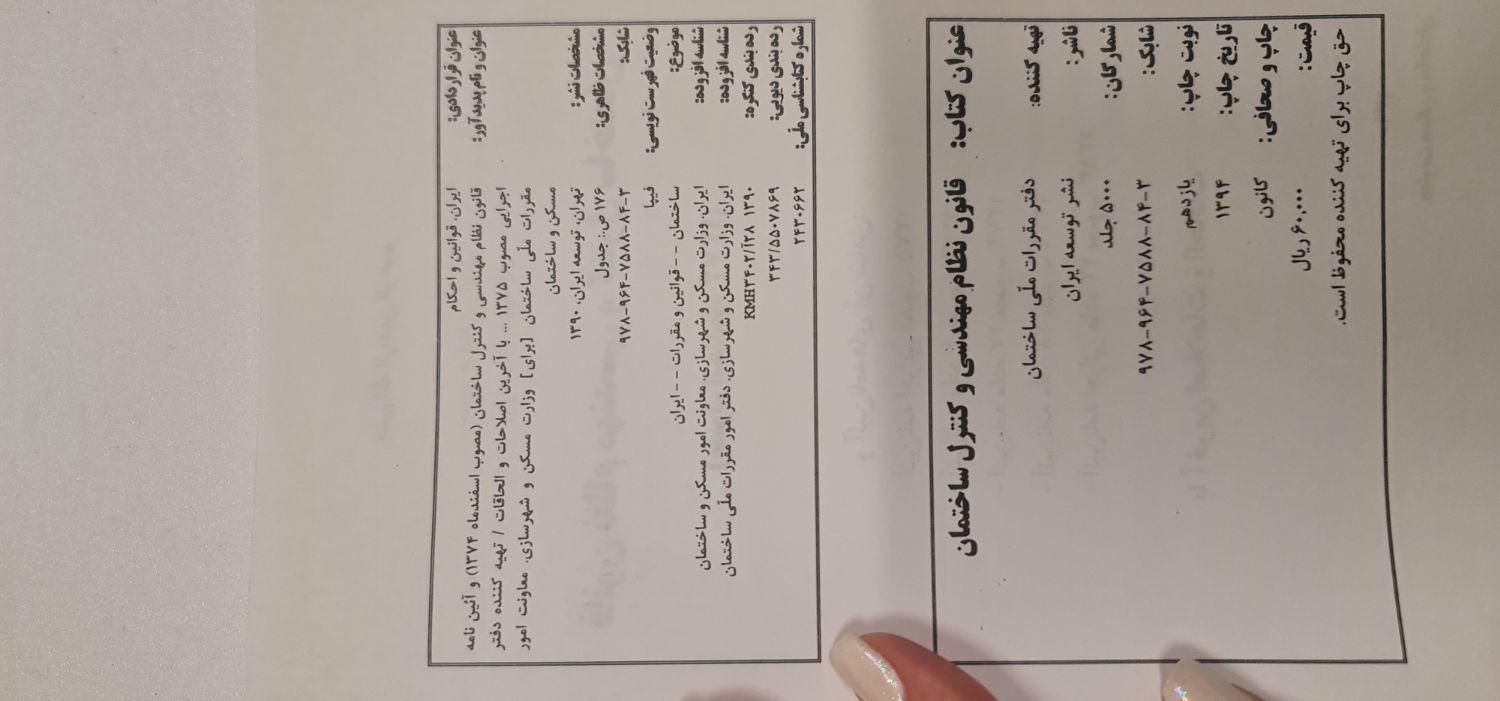 عنوان قراردادی: ایران. قوانین و احکام
عنوان و نام پدیدآور: قانون نظام مهندسی و کنترل ساختمان (مصوب اسفندماه ۱۳۷۴) و آئین نامه
اجرایی مصوب ۱۳۷۵ ... با آخرین اصلاحات و الحاقات / تهیه کننده دفتر
مقررات ملی ساختمان [برای] وزارت مسکن و شهرسازی. معاونت امور
مسکن و ساختمان
مشخصات نشر: تهران، توسعه ایران، ۱۳۹۰
مشخصات ظاهری: ۱۷۶ ص.: جدول
شابک: ۹۷۸-۹۶۴-۷۵۸۸-۸۴-۳
وضعیت فهرست نویسی: فیپا
موضوع: ساختمان -- قوانین و مقررات -- ایران
شناسه افزوده: ایران. وزارت مسکن و شهرسازی. معاونت امور مسکن و ساختمان
شناسه افزوده: ایران. وزارت مسکن و شهرسازی. دفتر امور مقررات ملی ساختمان
رده بندی کنگره: KMH۳۴۰۲/آ۲۸ ۱۳۹۰
رده بندی دیویی: ۳۴۳/۵۵۰۷۸۶۹
شماره کتابشناسی ملی: ۲۴۳۰۶۶۲
عنوان کتاب: قانون نظام مهندسی و کنترل ساختمان
تهیه کننده: دفتر مقررات ملّی ساختمان
ناشر: نشر توسعه ایران
شمارگان: ۵۰۰۰ جلد
شابک: ۹۷۸-۹۶۴-۷۵۸۸-۸۴-۳
نوبت چاپ: یازدهم
تاریخ چاپ: ۱۳۹۴
چاپ و صحافی: کانون
قیمت: ۶۰,۰۰۰ ریال
حق چاپ برای تهیه کننده محفوظ است.